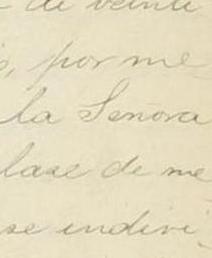 de veinti
s, por me
la Senora
lase de me
se indivi-